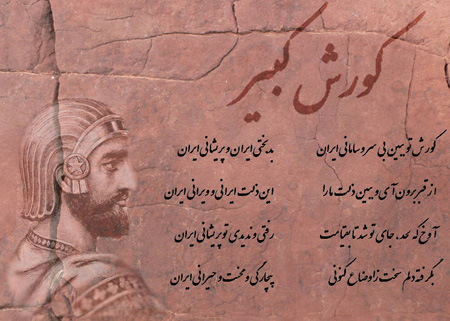 کورش کبیر
کورش تو ببین بی سر و سامانی ایران بدبختی ایران و پریشانی ایران
از قبر برون آی و ببین ذلت ما را این ذلت ایرانی و ویرانی ایران
آوخ که لحد، جای تو شد تا به قیامت رفتی و ندیدی تو پریشانی ایران
بگرفته دلم سخت ز اوضاع کنونی بیچارگی و محنت و حیرانی ایران